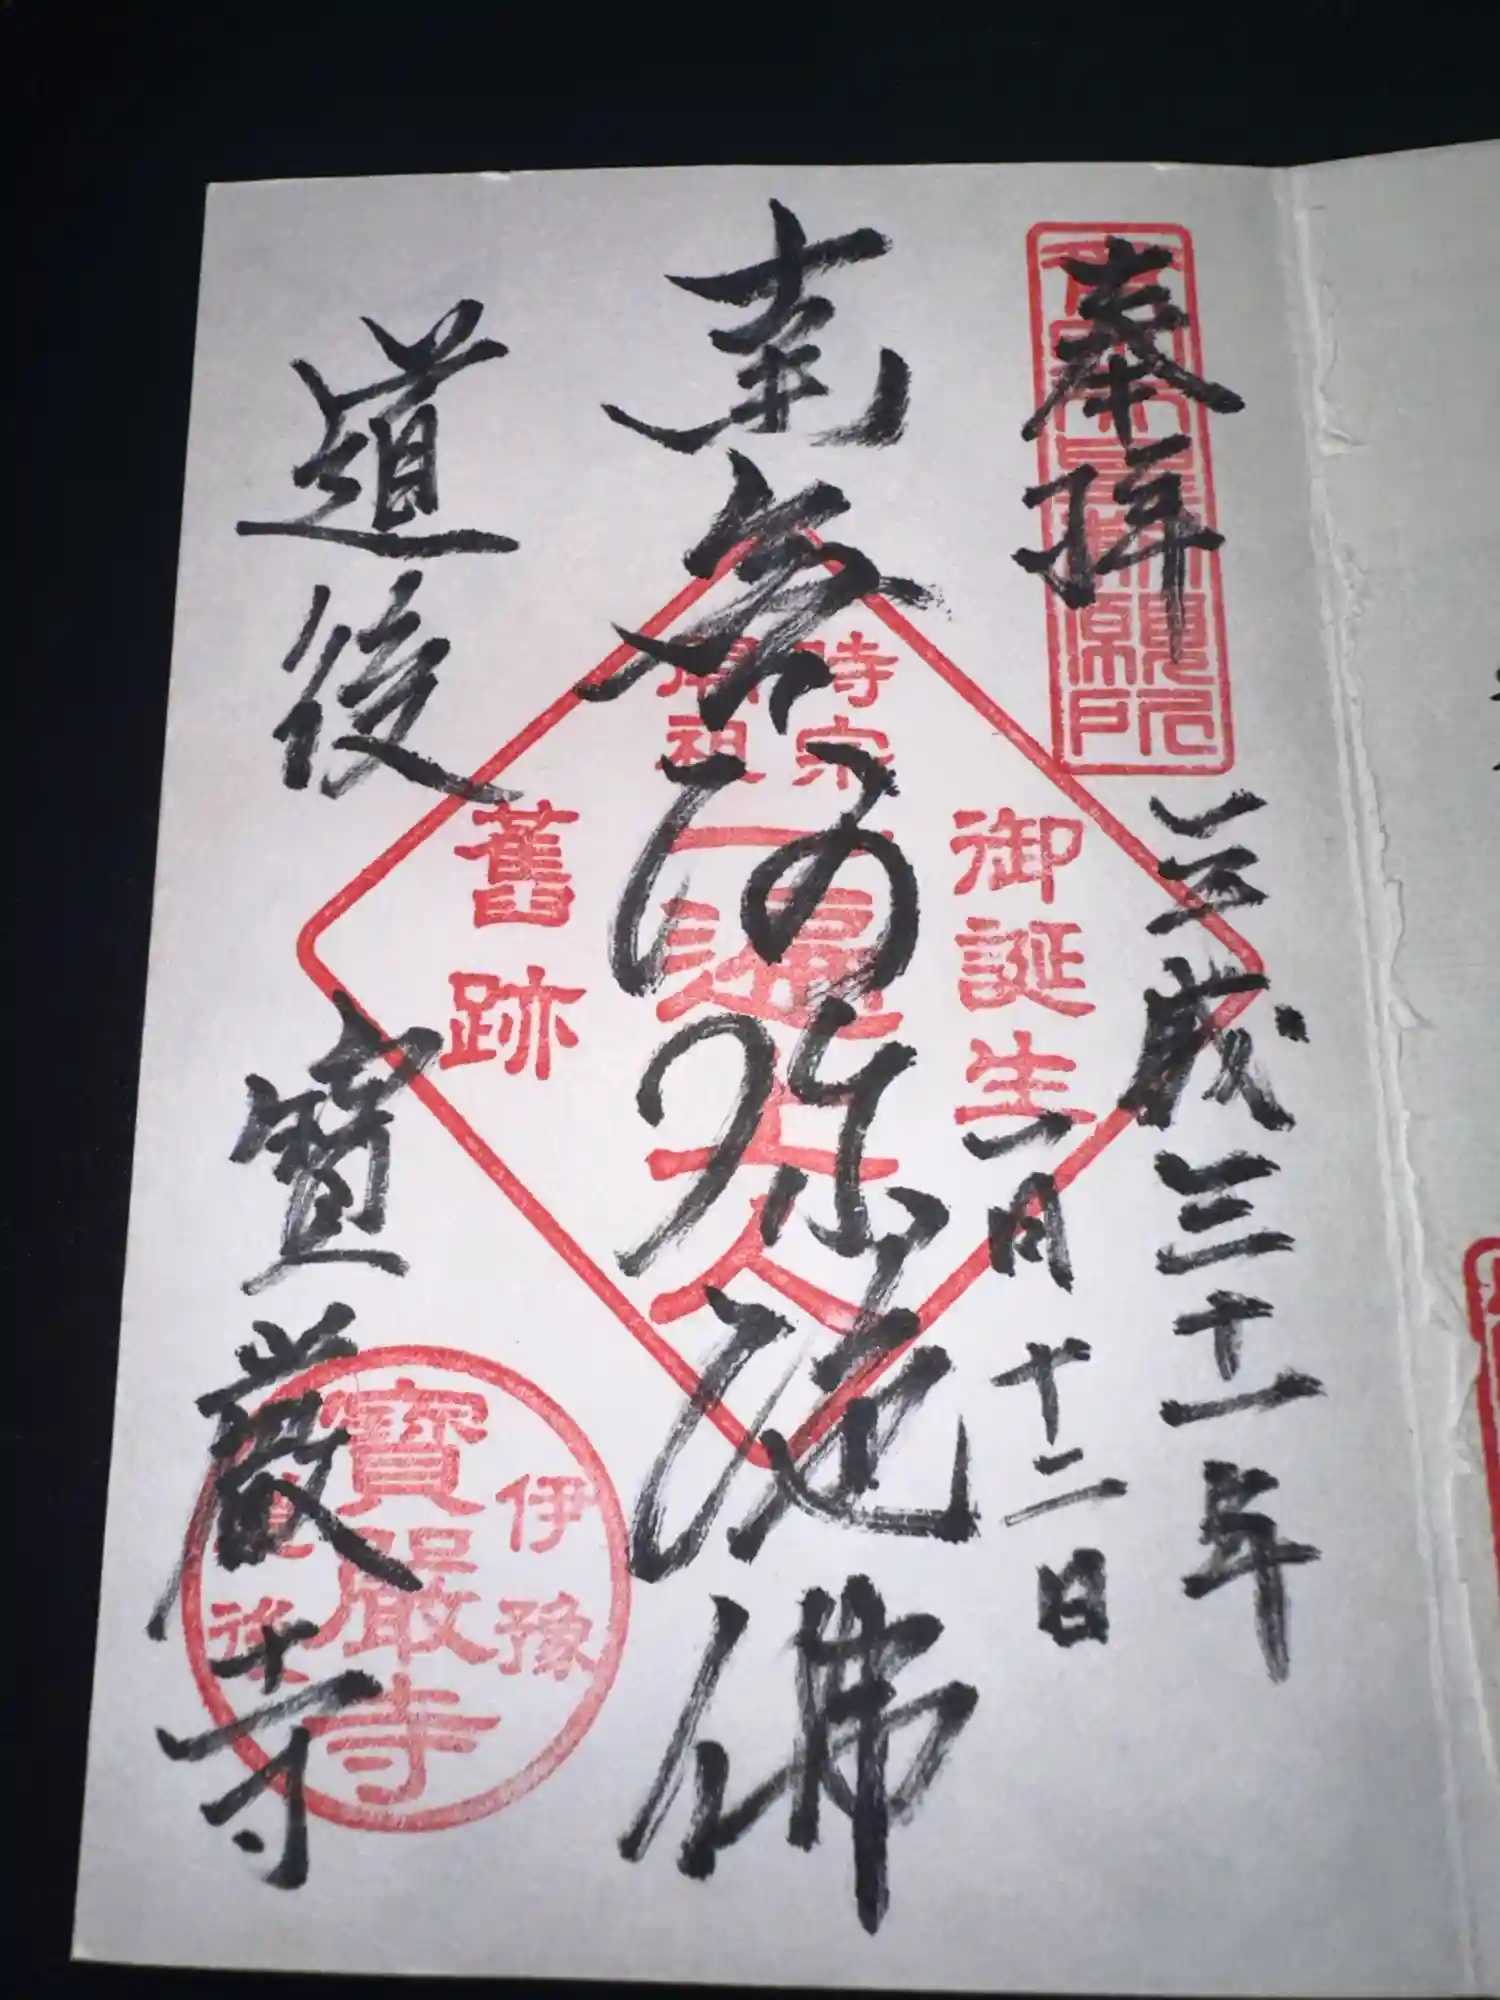 奉拝
平成三十一年
一月十二日
南無阿弥陀佛
道後
宝厳寺
御誕生
時宗
開祖
一遍上人
舊跡
伊豫
寶嚴寺
道後